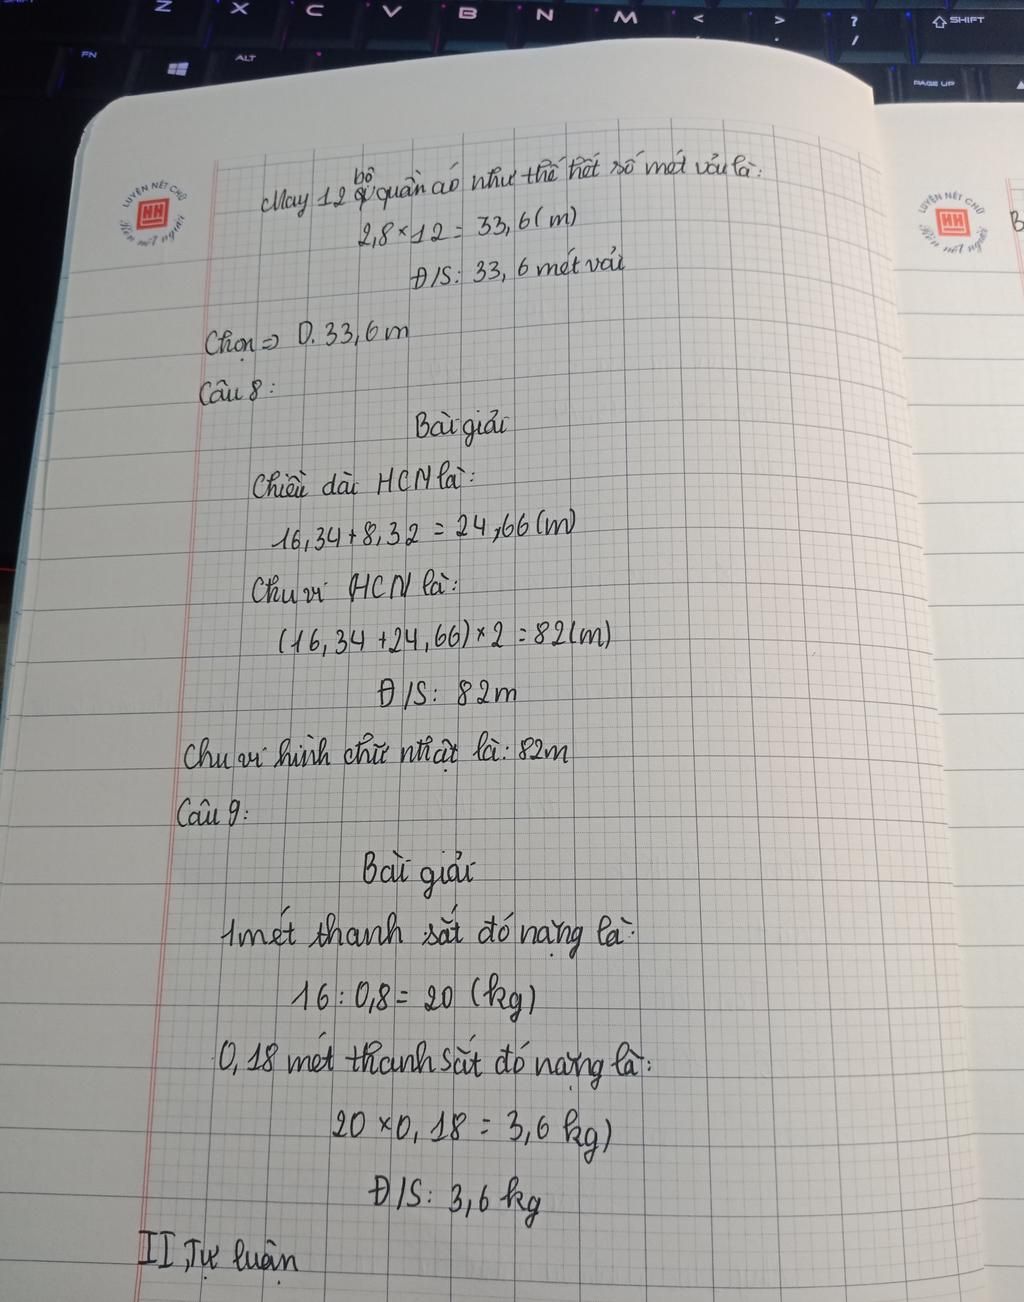 Z X C V B N M < > ? / SHIFT
FN ALT PAGE UP
LUYỆN NÉT CHỮ
HH
Rèn nết người
LUYỆN NÉT CHỮ
HH
Rèn nết người
B
May 12 bộ quần áo như thế hết số mét vải là:
2,8 × 12 = 33,6 (m)
Đ/S: 33,6 mét vải
Chọn => D. 33,6 m
Câu 8:
Bài giải
Chiều dài HCN là:
16,34 + 8,32 = 24,66 (m)
Chu vi HCN là:
(16,34 + 24,66) × 2 = 82 (m)
Đ/S: 82m
Chu vi hình chữ nhật là: 82m
Câu 9:
Bài giải
1 mét thanh sắt đó nặng là:
16 : 0,8 = 20 (kg)
0,18 mét thanh sắt đó nặng là:
20 × 0,18 = 3,6 kg)
Đ/S: 3,6 kg
II, Tự luận